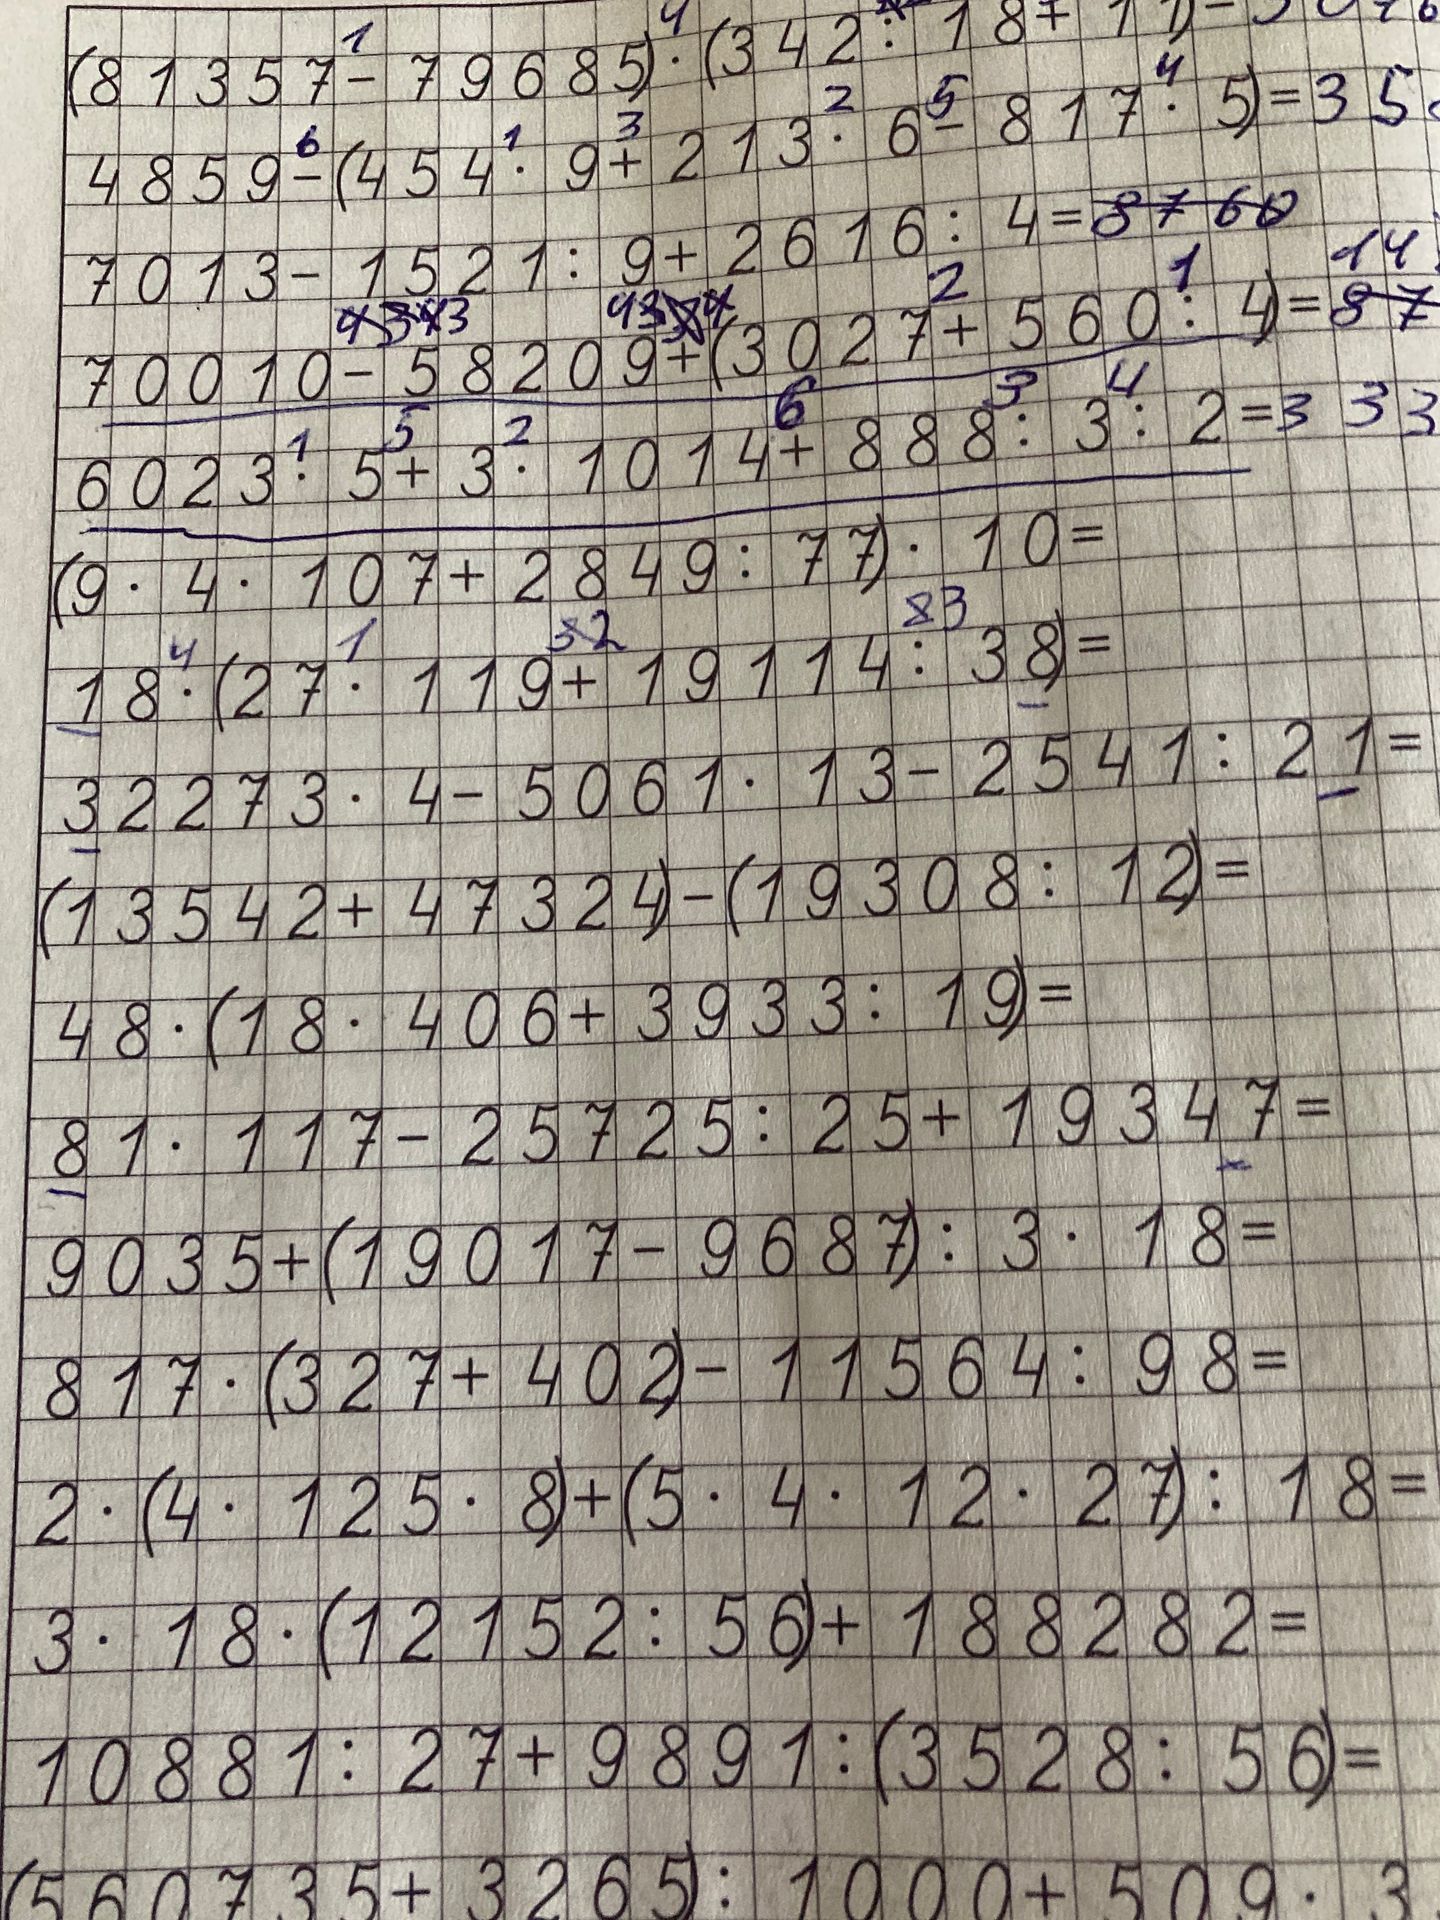 (81357-79685)·(342:18+11)=
4859-(454·9+213·6-817·5)=35
7013-1521:9+2616:4=8760
70010-58209+(3027+560:4)=87
14
6023·5+3·1014+888:3:2=333
(9·4·107+2849:77)·10=
18·(27·119+19114:38)=
32273·4-5061·13-2541:21=
(13542+47324)-(19308:12)=
48·(18·406+3933:19)=
81·117-25725:25+19347=
9035+(19017-9687):3·18=
817·(327+402)-11564:98=
2·(4·125·8)+(5·4·12·27):18=
3·18·(12152:56)+188282=
10881:27+9891:(3528:56)=
(560735+3265):1000+509·3